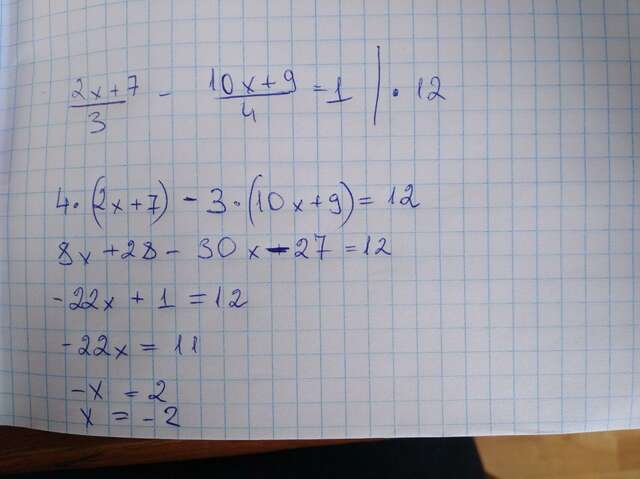 (2x+7)/3 - (10x+9)/4 = 1 | · 12
4·(2x+7) - 3·(10x+9) = 12
8x+28- 30x-27=12
-22x + 1 = 12
-22x = 11
-x = 2
x = -2